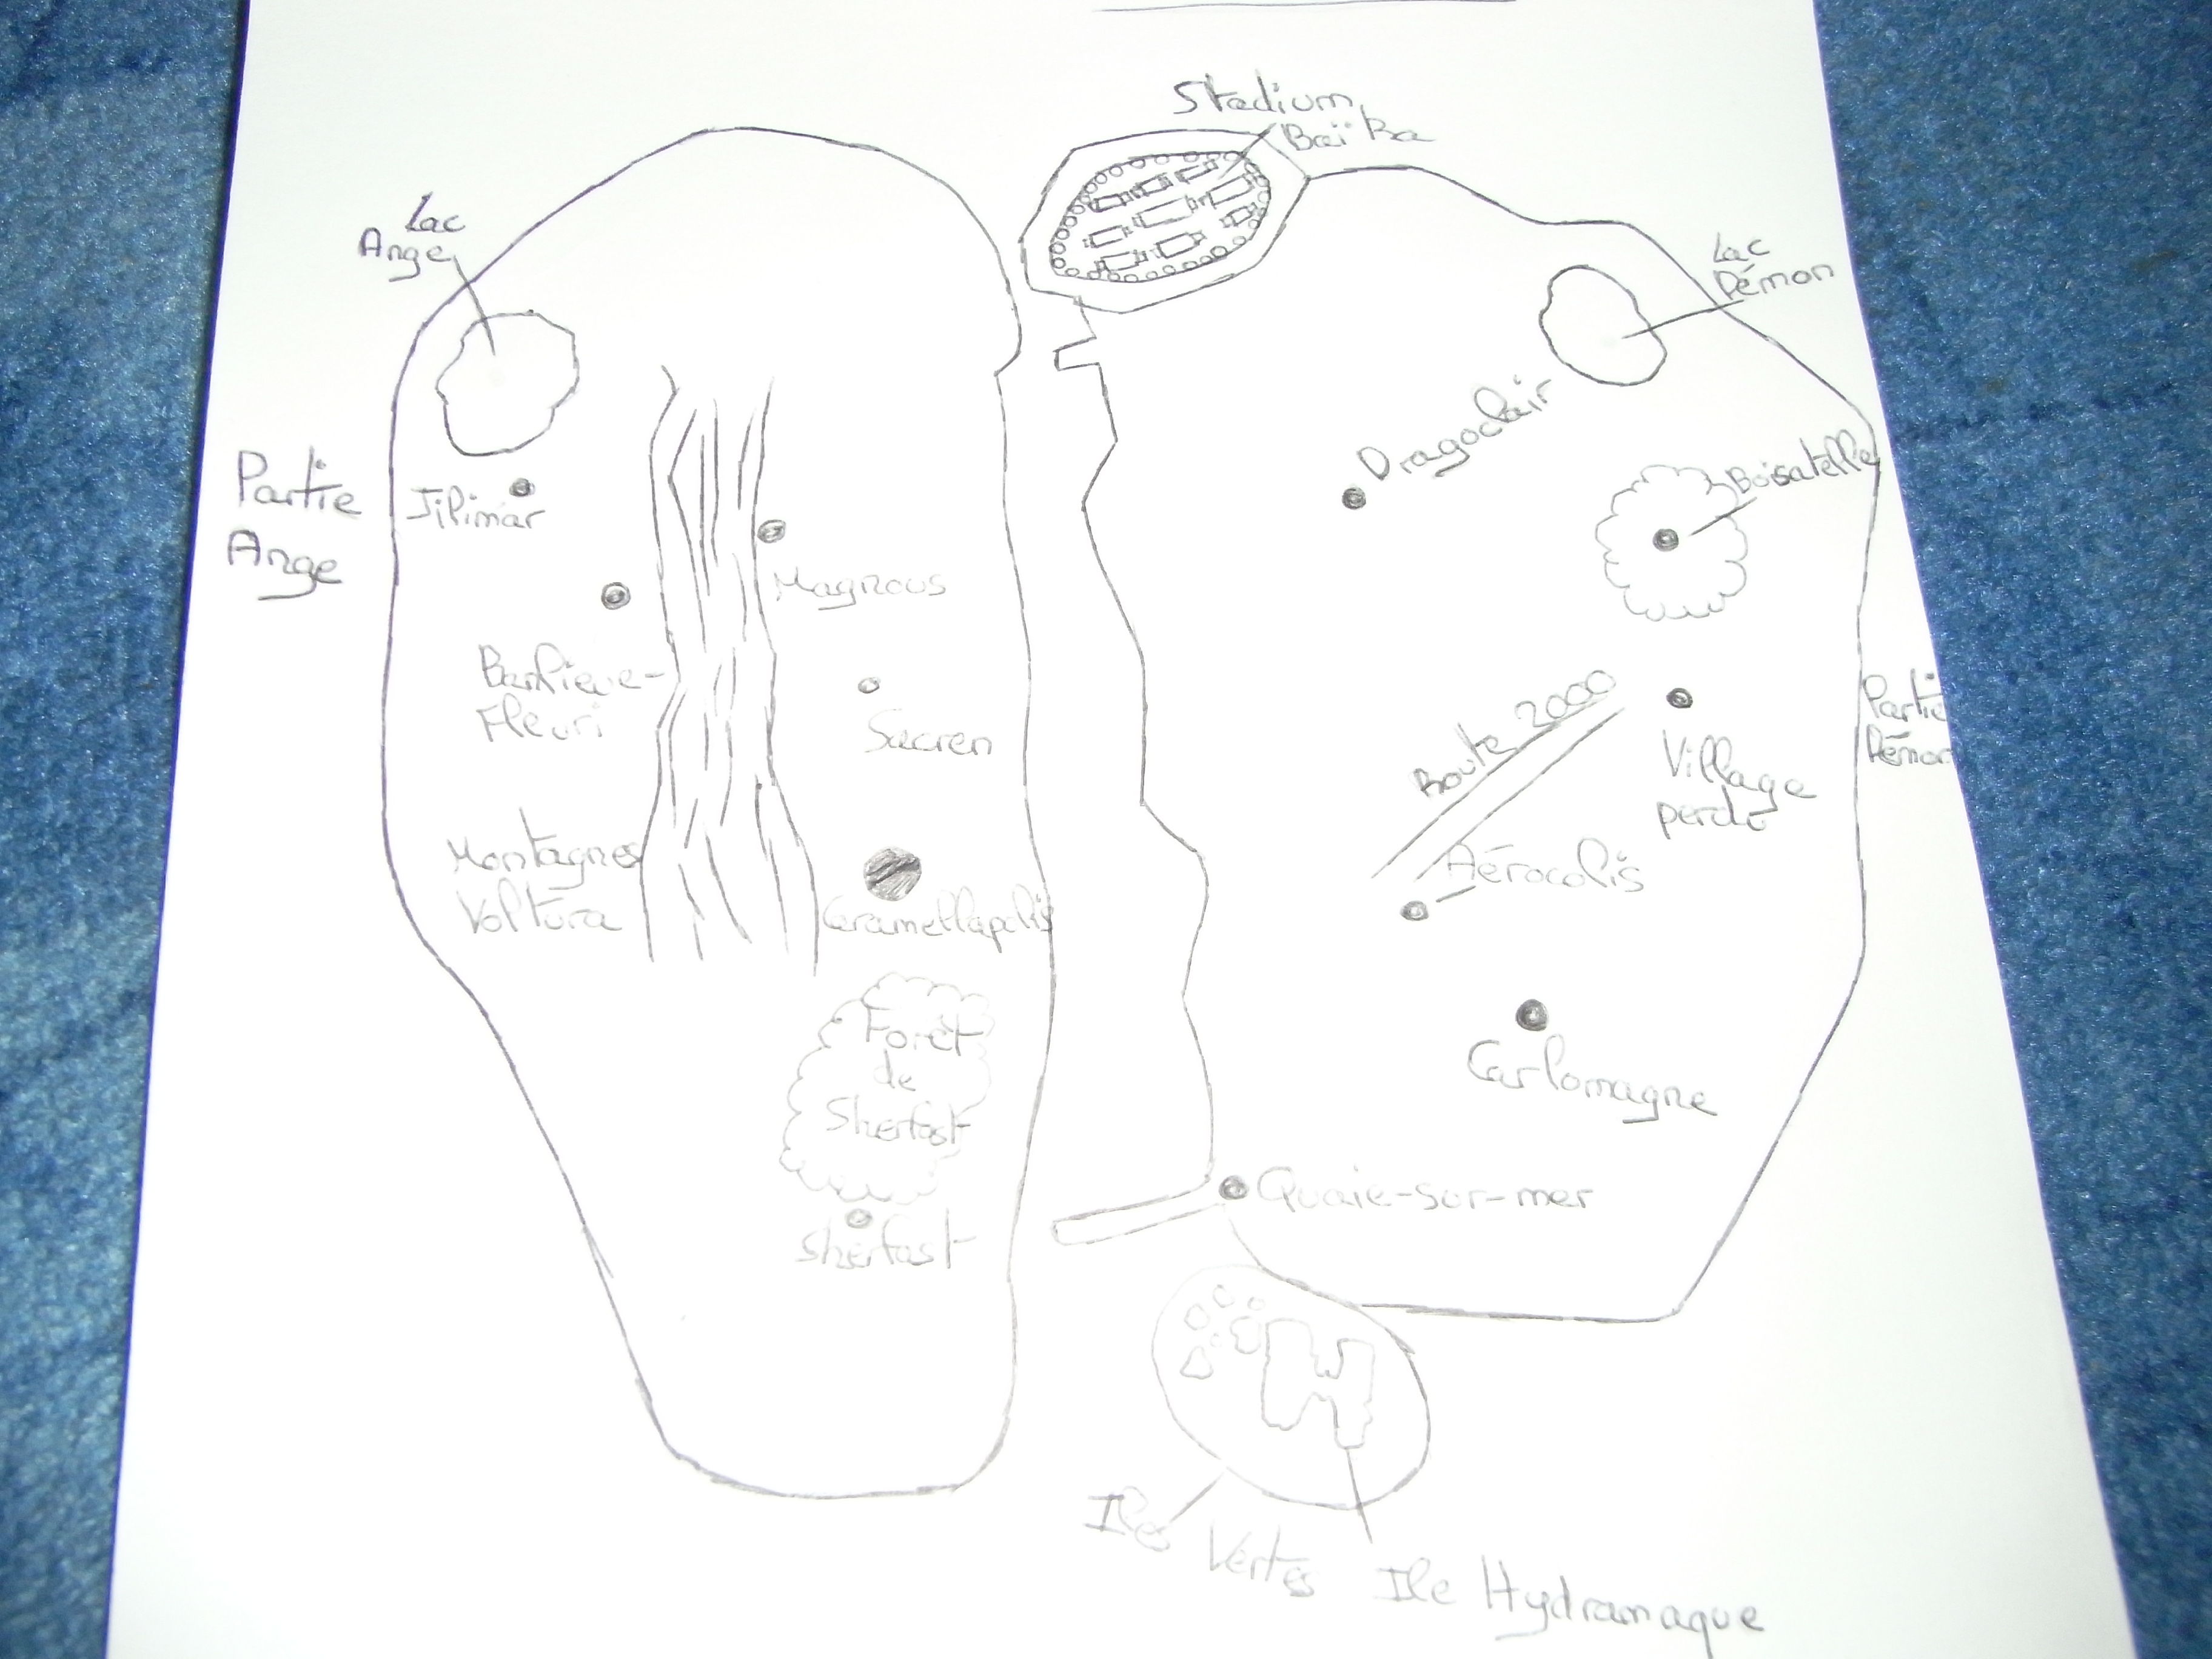 Stadium
Baï Ba
Lac
Ange
Lac
Démon
Partie
Ange
Jilimar
Dragoclair
Boisatelle
Magnous
Fleuri
Sacren
Route 2000
Village
perdu
Partie
Démon
Montagnes
Voltura
Caramellapolis
Aérocolis
Forêt
de
Sherfast
Sherfast
Carlomagne
Quaie-sur-mer
Iles Vertes
Ile Hydramaque